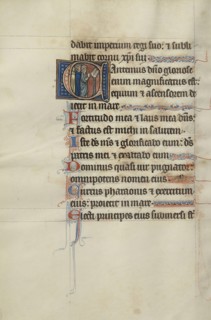 dabit imperium regi suo: et subli
mabit cornu xpi sui
Cantemus dno gloriose
enim magnificatus est
equum et ascensorem de
iecit in mare
Fortitudo mea et laus mea dns:
et factus est michi in salutem
Iste ds ms et glorificabo eum: ds
patris mei et exaltabo eum
Dominus quasi uir pugnator
omnipotens nomen eius
Currus pharaonis et exercitum
eius: proiecit in mare
Electi principes eius submersi st